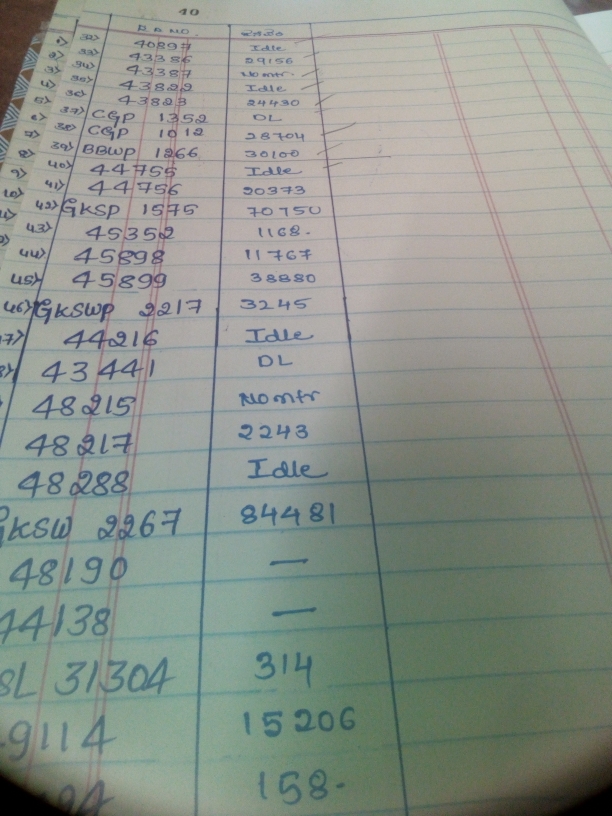 40
R.R NO. ರೀಡಿಂಗ
1) 32) 40897 Idle
2) 33) 43386 29156
3) 34) 43387 Nomtr.
4) 35) 43822 Idle
5) 36) 43823 24430
6) 37) CGP 1352 DL
7) 38) CGP 1012 28704
8) 39) BBWP 1266 30100
9) 40) 44755 Idle
10) 41) 44756 20373
42) GKSP 1575 70750
43) 45352 1168.
44) 45898 11767
45) 45899 38880
46) GKSWP 2217 3245
44216 Idle
43441 DL
48215 Nomtr
48217 2243
48288 Idle
GKSW 2267 84481
48190 —
44138 —
SL 31304 314
9114 15206
94 158.